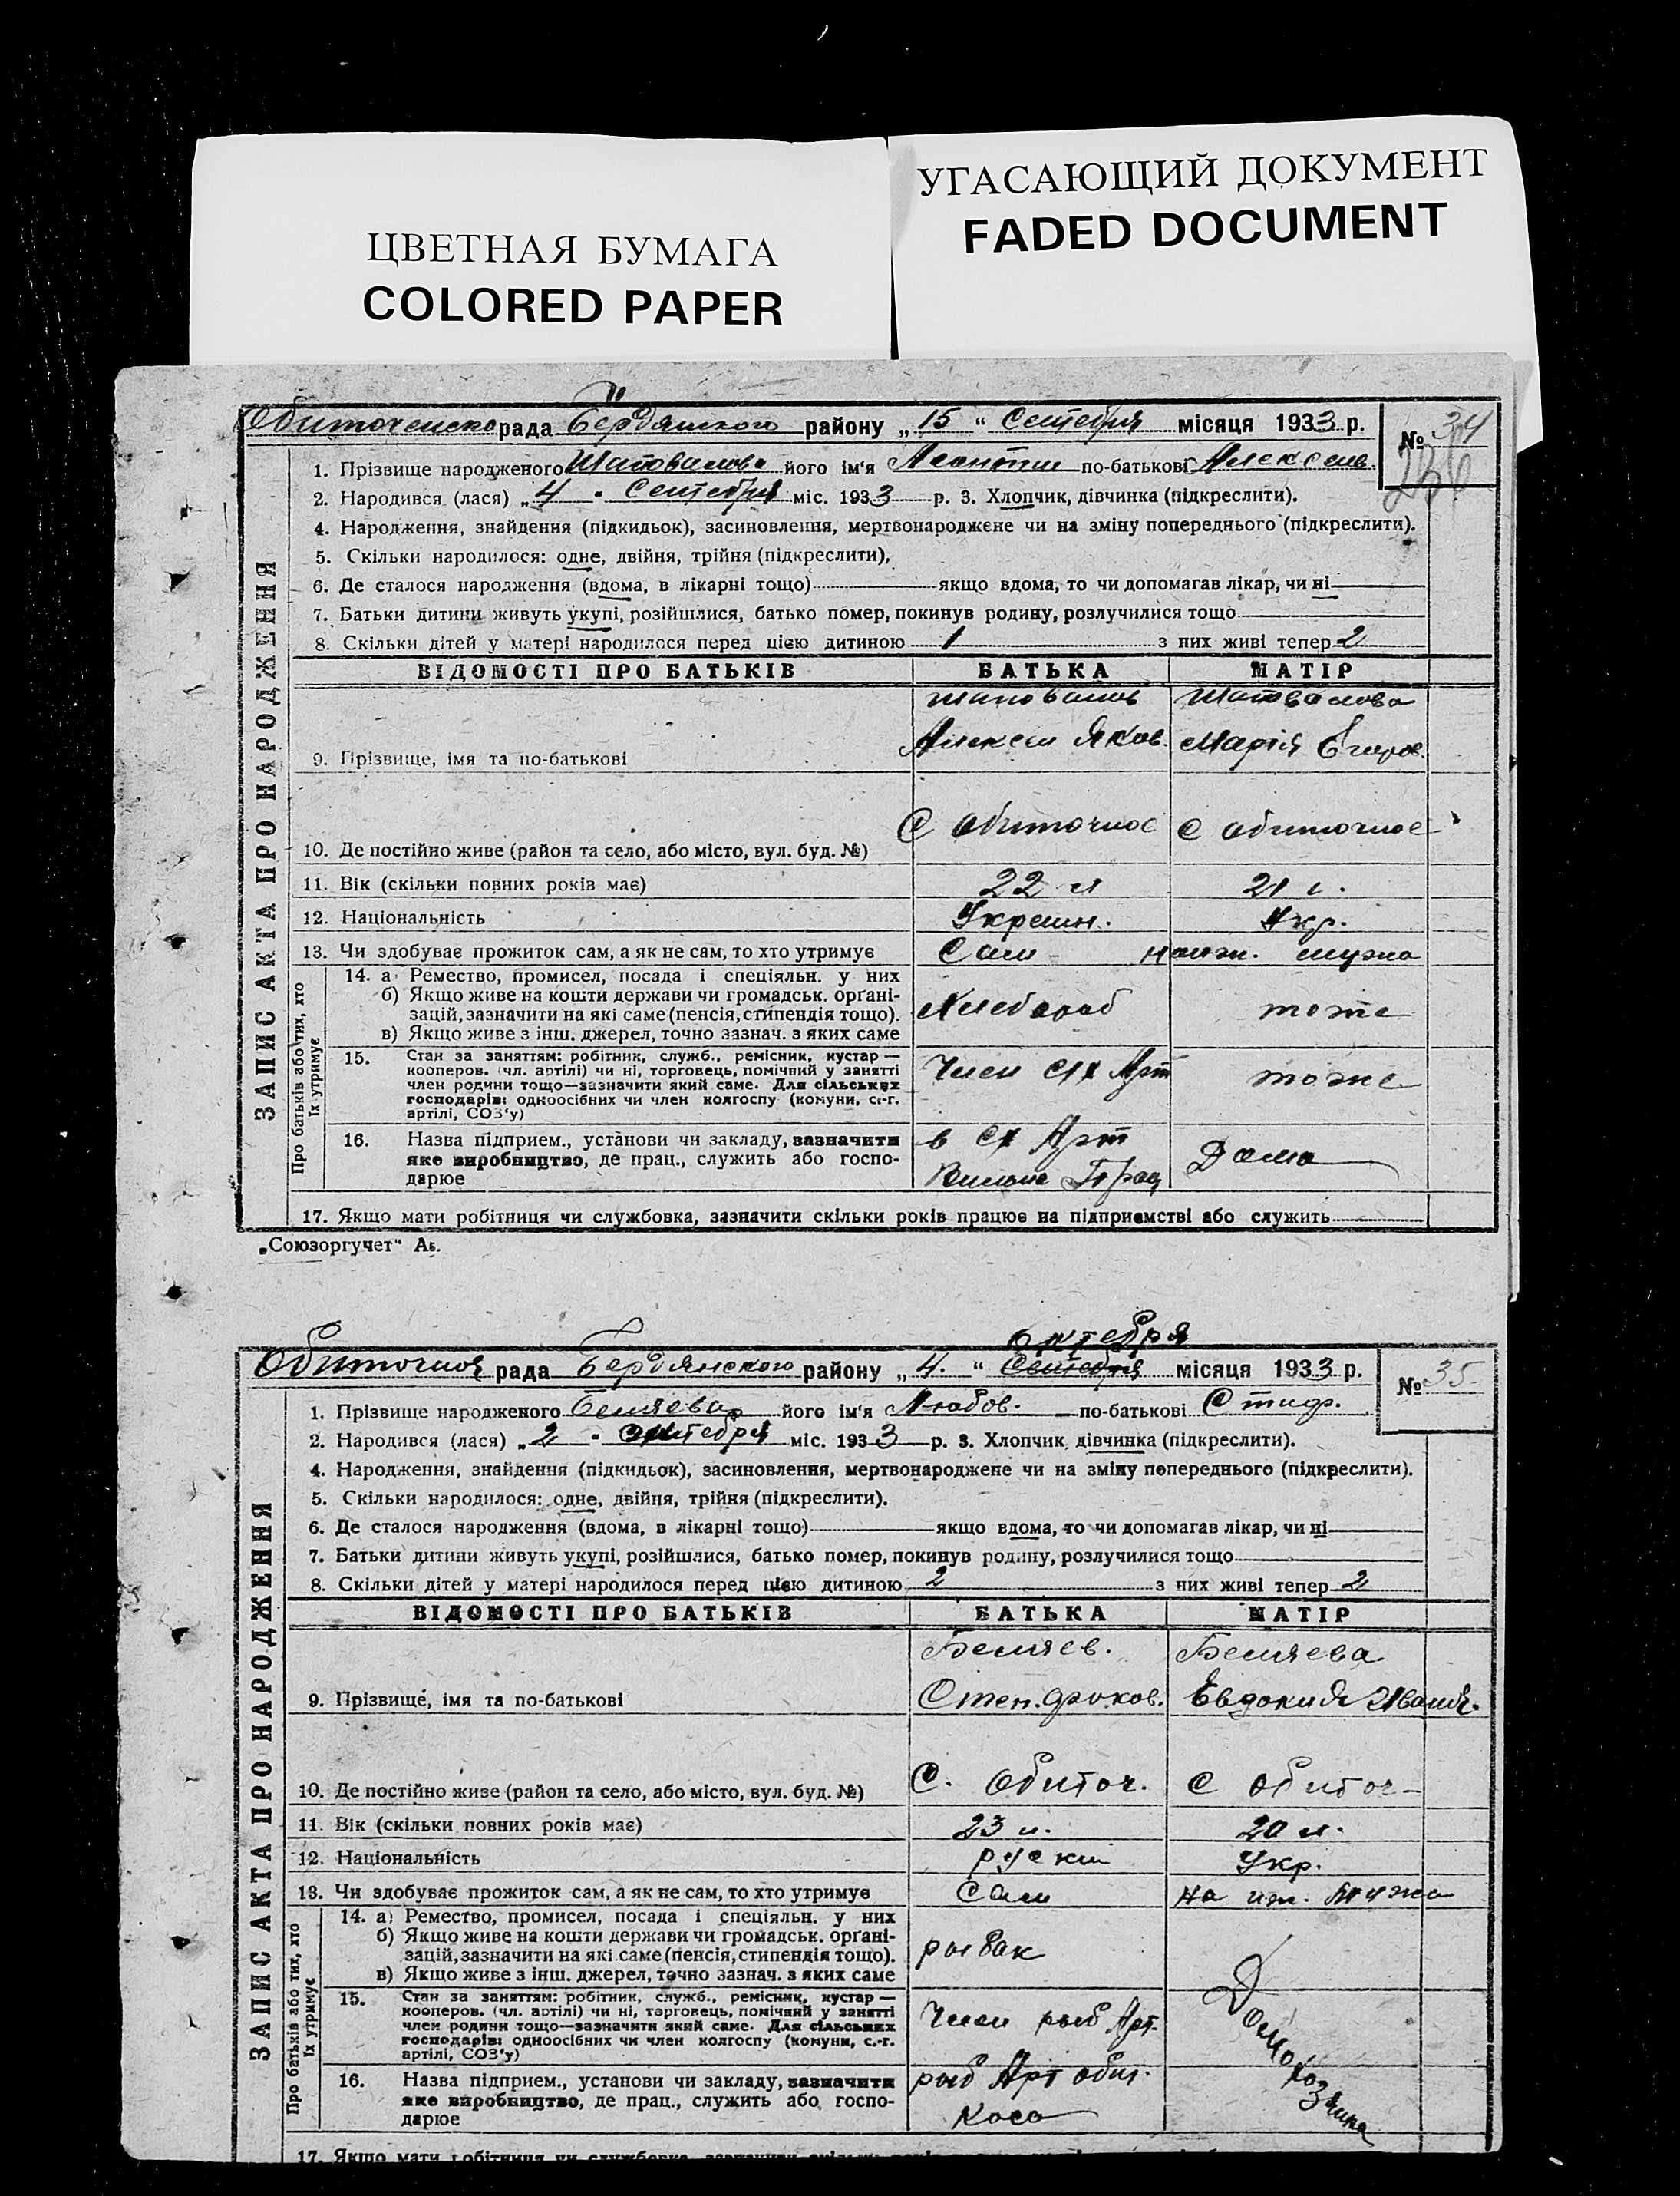 УГАСАЮЩИЙ ДОКУМЕНТ
FADED DOCUMENT
ЦВЕТНАЯ БУМАГА
COLORED PAPER
рада Бердянского району „15“ Сентебря місяця 1933 р.
№ 34
236
1. Прізвище народженого Шаповалова його ім'я по-батькові Алексеев.
2. Народився (лася) „4“ Сентебря міс. 1933 р. 3. Хлопчик, дівчинка (підкреслити).
4. Народження, знайдення (підкидьок), засиновлення, мертвонароджене чи на зміну попереднього (підкреслити).
5. Скільки народилося: одне, двійня, трійня (підкреслити),
6. Де сталося народження (вдома, в лікарні тощо) якщо вдома, то чи допомагав лікар, чи ні
7. Батьки дитини живуть укупі, розійшлися, батько помер, покинув родину, розлучилися тощо
8. Скільки дітей у матері народилося перед цією дитиною 1 з них живі тепер 2
ЗАПИС АКТА ПРО НАРОДЖЕННЯ
ВІДОМОСТІ ПРО БАТЬКІВ БАТЬКА МАТІР
Шаповалов Шаповалова
Алексей Яков. Марія Егоров.
9. Прізвище, імя та по-батькові
С Обиточное С Обиточное
10. Де постійно живе (район та село, або місто, вул. буд. №)
11. Вік (скільки повних років має) 22 л 21 л.
12. Національність Украин. Укр.
13. Чи здобуває прожиток сам, а як не сам, то хто утримує Сам на иж. мужа
Про батьків або тих, хто їх утримує
14. а) Ремество, промисел, посада і спеціяльн. у них
б) Якщо живе на кошти держави чи громадськ. орґані-
зацій, зазначити на які саме (пенсія, стипендія тощо). Хлебороб тоже
в) Якщо живе з інш. джерел, точно зазнач. з яких саме
15. Стан за заняттям: робітник, служб., ремісник, кустар —
кооперов. (чл. артілі) чи ні, торговець, помічний у занятті Член СХ Арт тоже
член родини тощо—зазначити який саме. Для сільських
господарів: одноосібних чи член колгоспу (комуни, с.-г.
артілі, СОЗ'у)
16. Назва підприєм., установи чи закладу, зазначити в СХ Арт
яке виробництво, де прац., служить або госпо- Дома
дарює Вильна Прац
17. Якщо мати робітниця чи службовка, зазначити скільки років працює на підприємстві або служить
„Союзоргучет“ Аб.
Октебря
Обиточноя рада Бердянского району „4.“ Сентебря місяця 1933 р.
№ 35
1. Прізвище народженого Беляева його ім'я Любов. по-батькові
2. Народився (лася) „2“ Октебря міс. 1933 р. 3. Хлопчик, дівчинка (підкреслити).
4. Народження, знайдення (підкидьок), засиновлення, мертвонароджене чи на зміну попереднього (підкреслити).
5. Скільки народилося: одне, двійня, трійня (підкреслити).
6. Де сталося народження (вдома, в лікарні тощо) якщо вдома, то чи допомагав лікар, чи ні
7. Батьки дитини живуть укупі, розійшлися, батько помер, покинув родину, розлучилися тощо
8. Скільки дітей у матері народилося перед цією дитиною 2 з них живі тепер 2
ЗАПИС АКТА ПРО НАРОДЖЕННЯ
ВІДОМОСТІ ПРО БАТЬКІВ БАТЬКА МАТІР
Беляев. Беляева
9. Прізвище, імя та по-батькові Степ. Евдокия Ивановн.
10. Де постійно живе (район та село, або місто, вул. буд. №) С. Обиточ. С Обиточ
11. Вік (скільки повних років має) 23 л. 20 л.
12. Національність руский Укр.
13. Чи здобуває прожиток сам, а як не сам, то хто утримує Сам на иж. мужа
Про батьків або тих, хто їх утримує
14. а) Ремество, промисел, посада і спеціяльн. у них
б) Якщо живе на кошти держави чи громадськ. орґані-
зацій, зазначити на які саме (пенсія, стипендія тощо). рыбак
в) Якщо живе з інш. джерел, точно зазнач. з яких саме
15. Стан за заняттям: робітник, служб., ремісник, кустар —
кооперов. (чл. артілі) чи ні, торговець, помічний у занятті Член рыб Арт.
член родини тощо—зазначити який саме. Для сільських
господарів: одноосібних чи член колгоспу (комуни, с.-г.
артілі, СОЗ'у)
Домохозяика
16. Назва підприєм., установи чи закладу, зазначити рыб Арт обит.
яке виробництво, де прац., служить або госпо-
дарює Коса
17. Якщо мати робітниця чи службовка, зазначити скільки